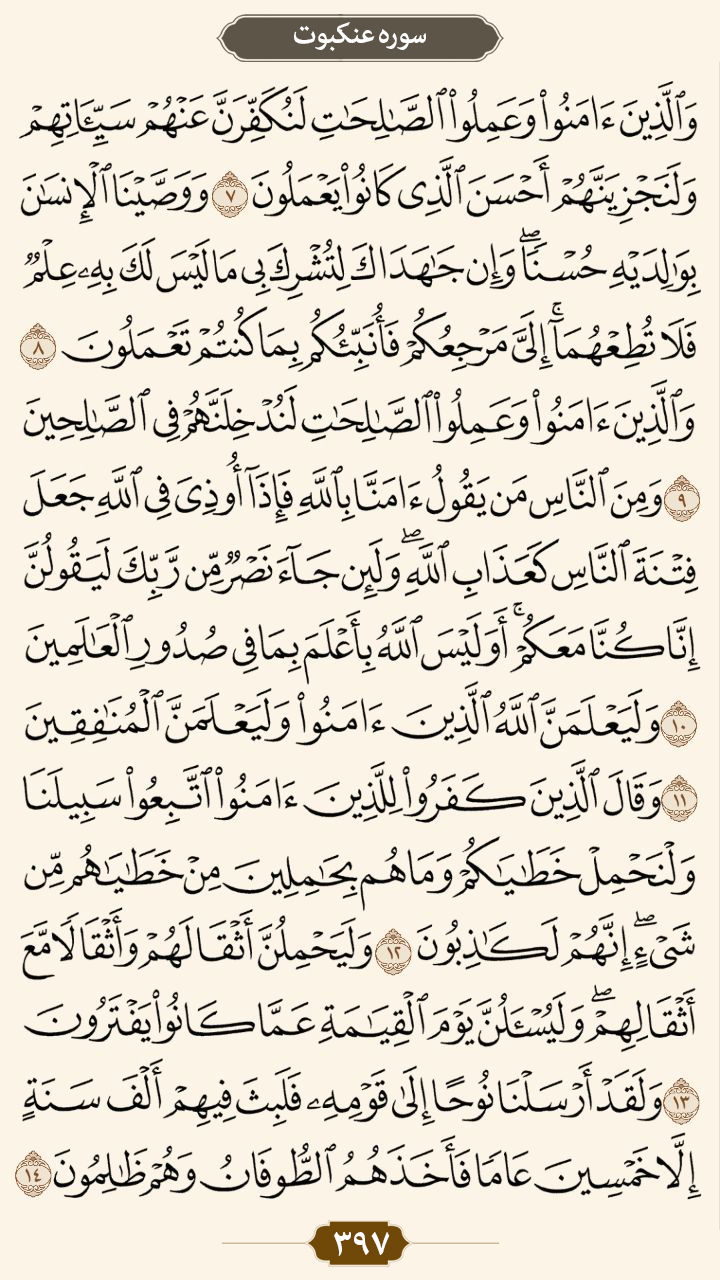 سوره عنکبوت
وَٱلَّذِينَ ءَامَنُوا۟ وَعَمِلُوا۟ ٱلصَّـٰلِحَـٰتِ لَنُكَفِّرَنَّ عَنْهُمْ سَيِّـَٔاتِهِمْ
وَلَنَجْزِيَنَّهُمْ أَحْسَنَ ٱلَّذِى كَانُوا۟ يَعْمَلُونَ ٧ وَوَصَّيْنَا ٱلْإِنسَـٰنَ
بِوَٰلِدَيْهِ حُسْنًا ۖ وَإِن جَـٰهَدَاكَ لِتُشْرِكَ بِى مَا لَيْسَ لَكَ بِهِۦ عِلْمٌ
فَلَا تُطِعْهُمَآ ۚ إِلَىَّ مَرْجِعُكُمْ فَأُنَبِّئُكُم بِمَا كُنتُمْ تَعْمَلُونَ ٨
وَٱلَّذِينَ ءَامَنُوا۟ وَعَمِلُوا۟ ٱلصَّـٰلِحَـٰتِ لَنُدْخِلَنَّهُمْ فِى ٱلصَّـٰلِحِينَ
٩ وَمِنَ ٱلنَّاسِ مَن يَقُولُ ءَامَنَّا بِٱللَّهِ فَإِذَآ أُوذِىَ فِى ٱللَّهِ جَعَلَ
فِتْنَةَ ٱلنَّاسِ كَعَذَابِ ٱللَّهِ ۖ وَلَئِن جَآءَ نَصْرٌ مِّن رَّبِّكَ لَيَقُولُنَّ
إِنَّا كُنَّا مَعَكُمْ ۚ أَوَلَيْسَ ٱللَّهُ بِأَعْلَمَ بِمَا فِى صُدُورِ ٱلْعَـٰلَمِينَ
١٠ وَلَيَعْلَمَنَّ ٱللَّهُ ٱلَّذِينَ ءَامَنُوا۟ وَلَيَعْلَمَنَّ ٱلْمُنَـٰفِقِينَ
١١ وَقَالَ ٱلَّذِينَ كَفَرُوا۟ لِلَّذِينَ ءَامَنُوا۟ ٱتَّبِعُوا۟ سَبِيلَنَا
وَلْنَحْمِلْ خَطَـٰيَـٰكُمْ وَمَا هُم بِحَـٰمِلِينَ مِنْ خَطَـٰيَـٰهُم مِّن
شَىْءٍ ۖ إِنَّهُمْ لَكَـٰذِبُونَ ١٢ وَلَيَحْمِلُنَّ أَثْقَالَهُمْ وَأَثْقَالًا مَّعَ
أَثْقَالِهِمْ ۖ وَلَيُسْـَٔلُنَّ يَوْمَ ٱلْقِيَـٰمَةِ عَمَّا كَانُوا۟ يَفْتَرُونَ
١٣ وَلَقَدْ أَرْسَلْنَا نُوحًا إِلَىٰ قَوْمِهِۦ فَلَبِثَ فِيهِمْ أَلْفَ سَنَةٍ
إِلَّا خَمْسِينَ عَامًا فَأَخَذَهُمُ ٱلطُّوفَانُ وَهُمْ ظَـٰلِمُونَ ١٤
٣٩٧